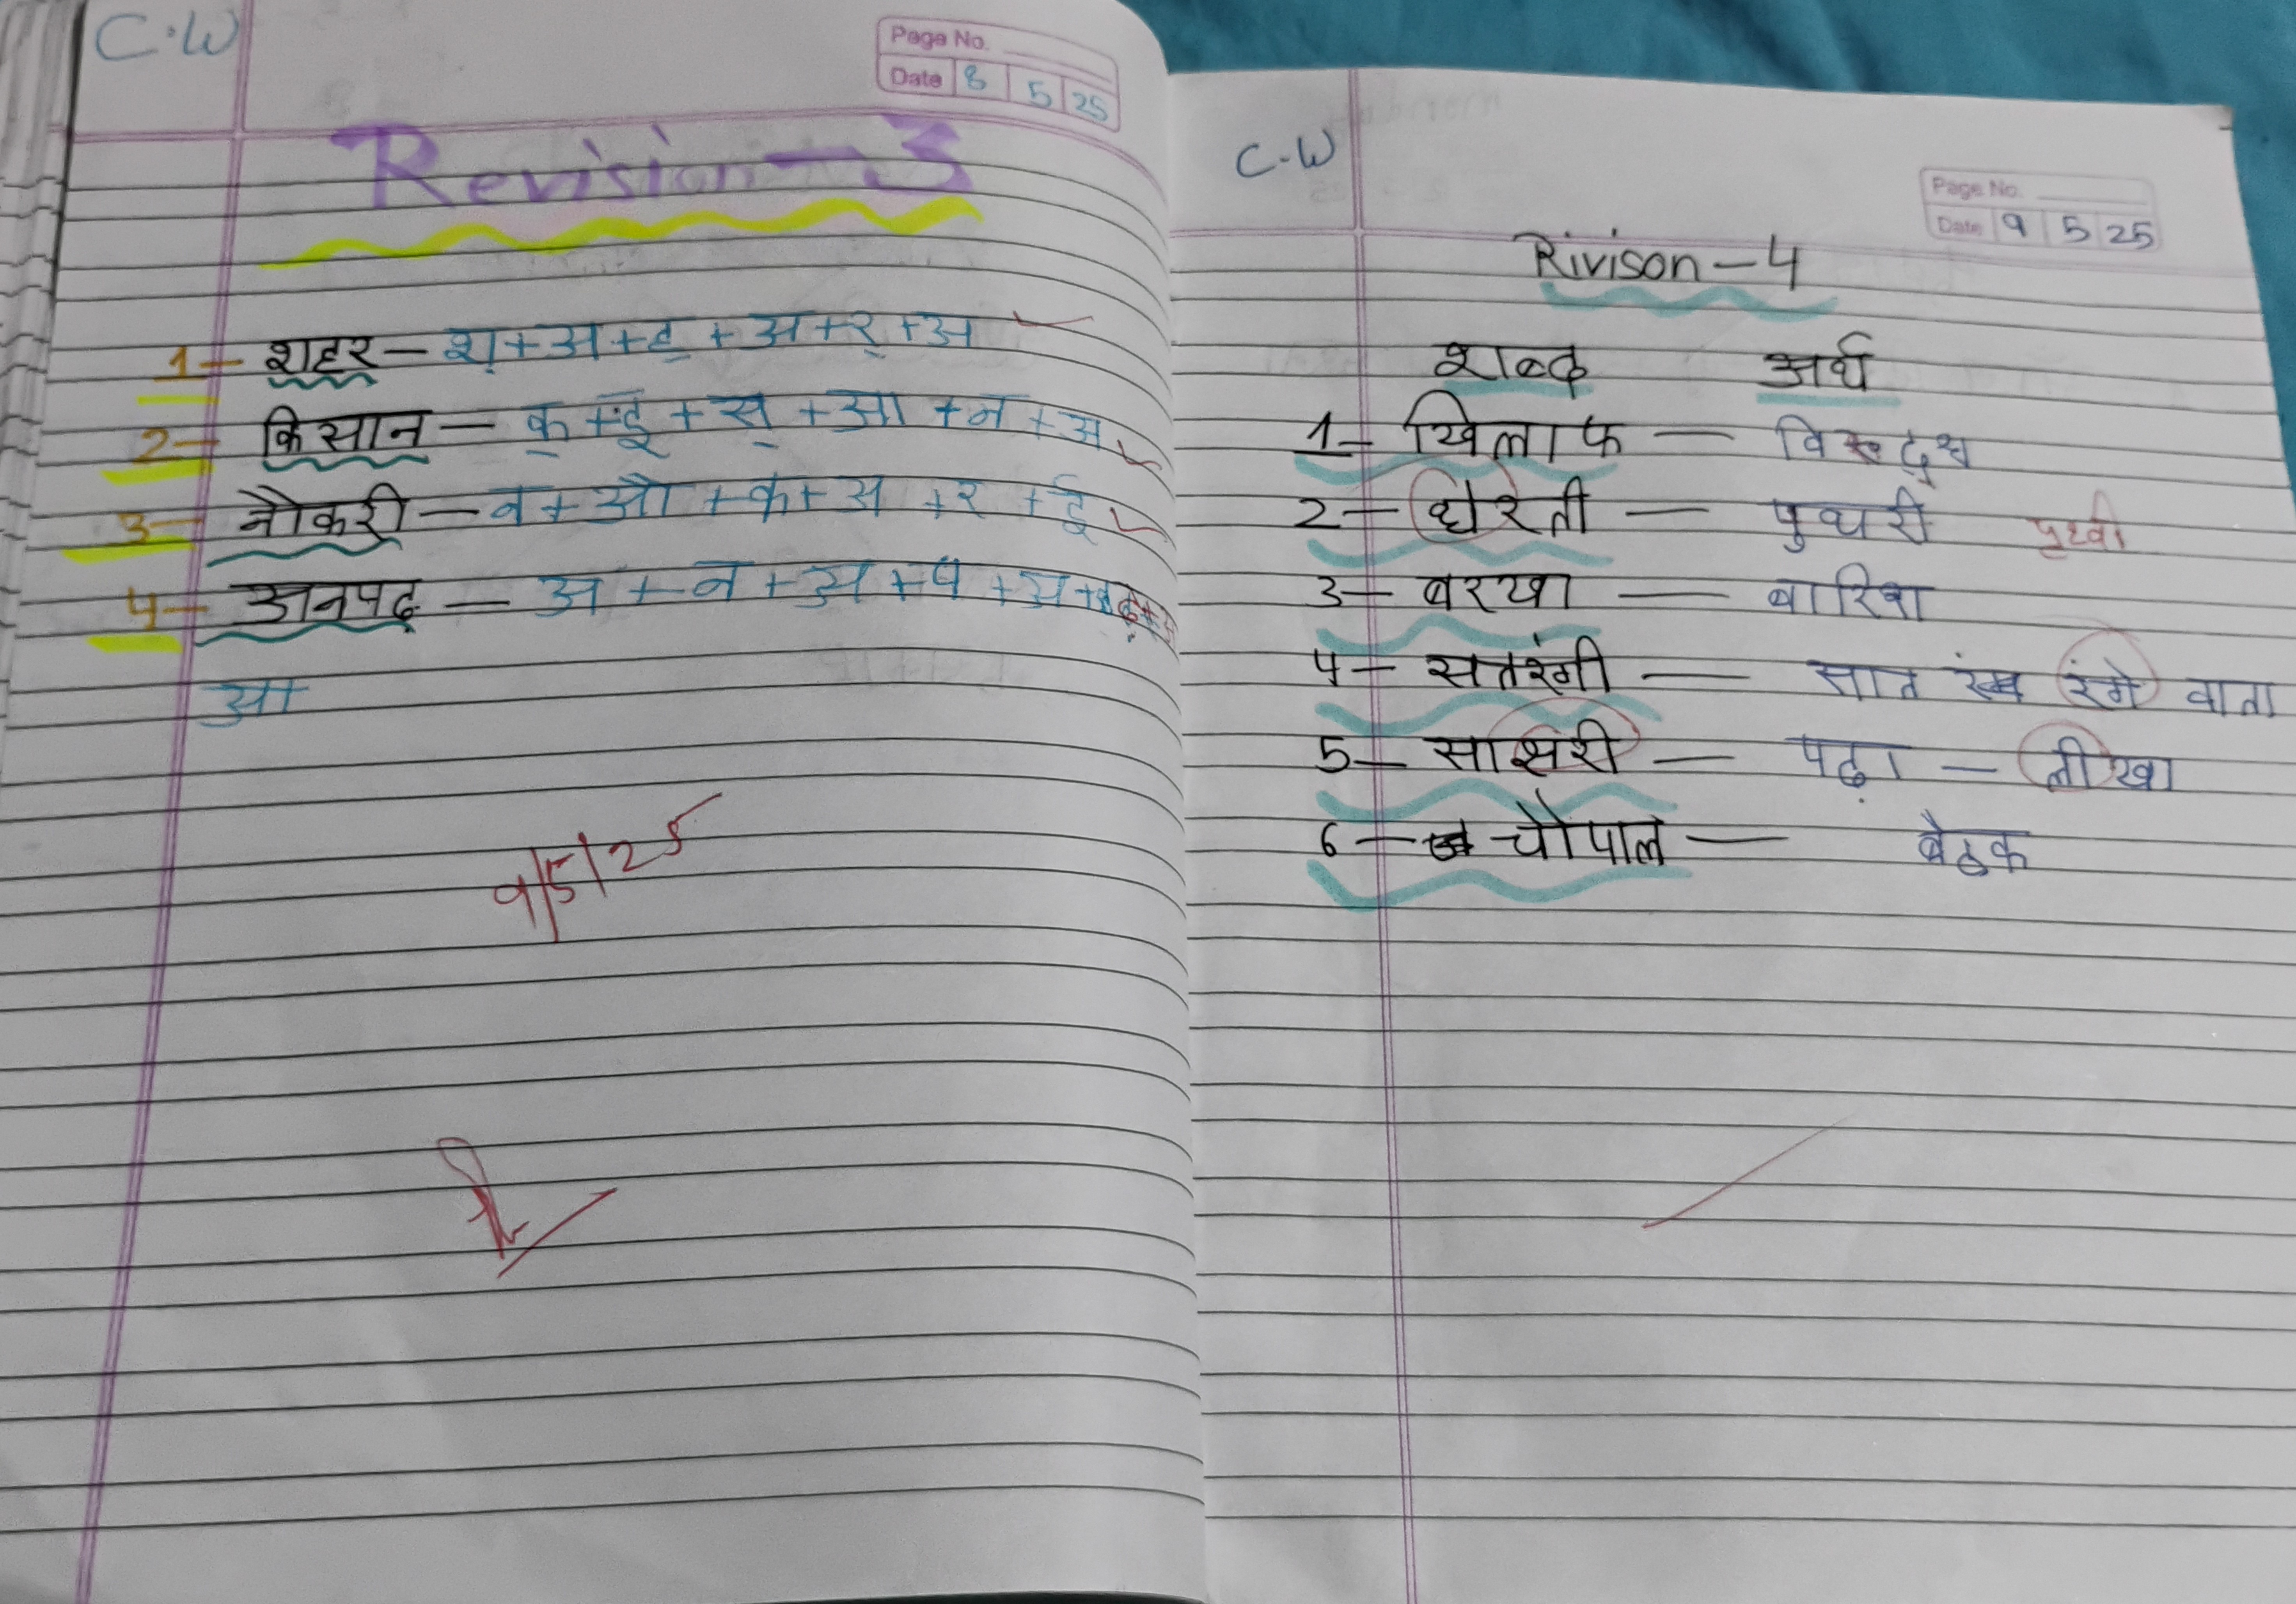 C.W
Page No.
Date 8 5 25
Revision-3
1- शहर - श्+अ+ह्+अ+र्+अ
2- किसान - क्+इ+स्+आ+न+अ
3- नौकरी - न+औ+क+अ+र+ई
4- अनपढ़ - अ+न+अ+प+अ+
आ
9/5/25
C.W
Page No.
Date 9 5 25
Rivison-4
शब्द अर्थ
1- खिलाफ - विरुद्ध
2- धेरती - पुथरी पृथ्वी
3- बरखा - बारिश
4- सतरंगी - सात रंगे वाता
5- साक्षरी - पढ़ा - लीखा
6- चौपाल - बैठक